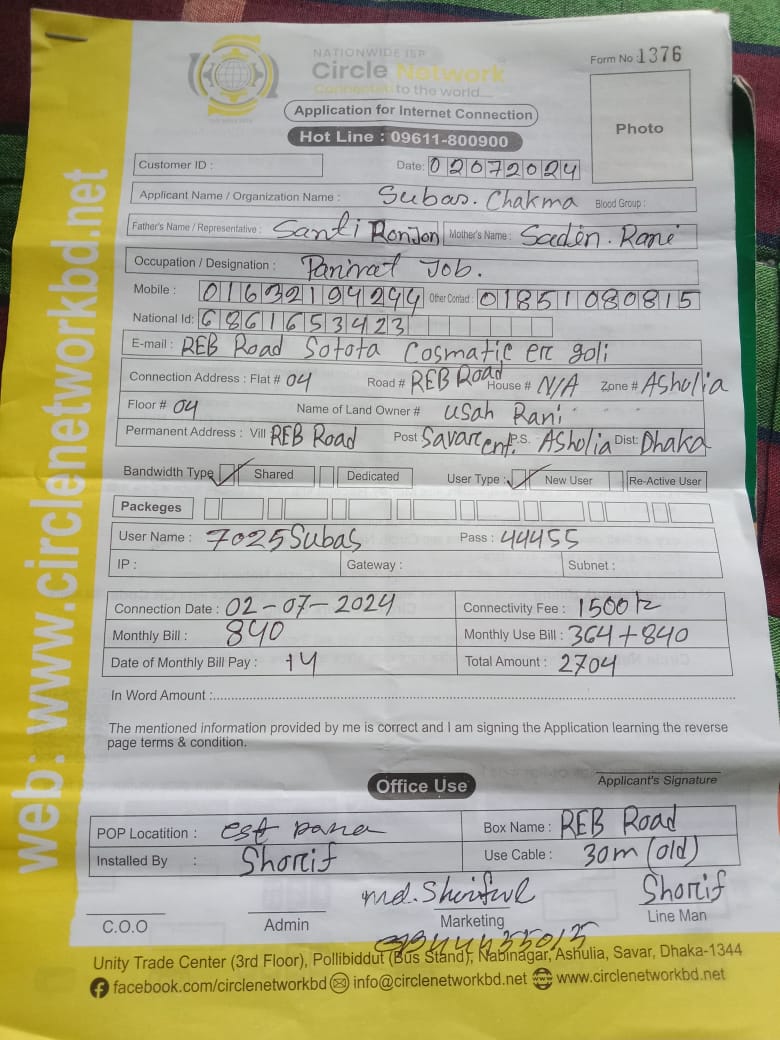 NATIONWIDE ISP
Circle Network
Connected to the world...
Form No 1376
Application for Internet Connection
Hot Line : 09611-800900
Photo
Customer ID :
Date: 02072024
Applicant Name / Organization Name : Subas. Chakma Blood Group :
Father's Name / Representative : Santi Ronjon Mother's Name : Saden. Rani
Occupation / Designation : Panirat Job.
Mobile : 01632194244 Other Contact : 01851080815
National Id: 6861653423
E-mail : REB Road Sotota Cosmatic er goli
Connection Address : Flat # 04 Road # REB Road House # N/A Zone # Asholia
Floor # 04 Name of Land Owner # Usah Rani
Permanent Address : Vill REB Road Post Savar P.S. Asholia Dist: Dhaka
Bandwidth Type : Shared Dedicated User Type : New User Re-Active User
Packeges
User Name : 7025Subas Pass : 44455
IP : Gateway : Subnet :
Connection Date : 02-07-2024 Connectivity Fee : 1500
Monthly Bill : 840 Monthly Use Bill : 364+840
Date of Monthly Bill Pay : 14 Total Amount : 2704
In Word Amount :
The mentioned information provided by me is correct and I am signing the Application learning the reverse
page terms & condition.
Applicant's Signature
Office Use
POP Locatition : est para Box Name : REB Road
Installed By : Shorif Use Cable : 30m (old)
md. Shoriful Shorif
C.O.O Admin Marketing Line Man
Unity Trade Center (3rd Floor), Pollibiddut (Bus Stand), Nabinagar, Ashulia, Savar, Dhaka-1344
facebook.com/circlenetworkbd info@circlenetworkbd.net www.circlenetworkbd.net
web: www.circlenetworkbd.net